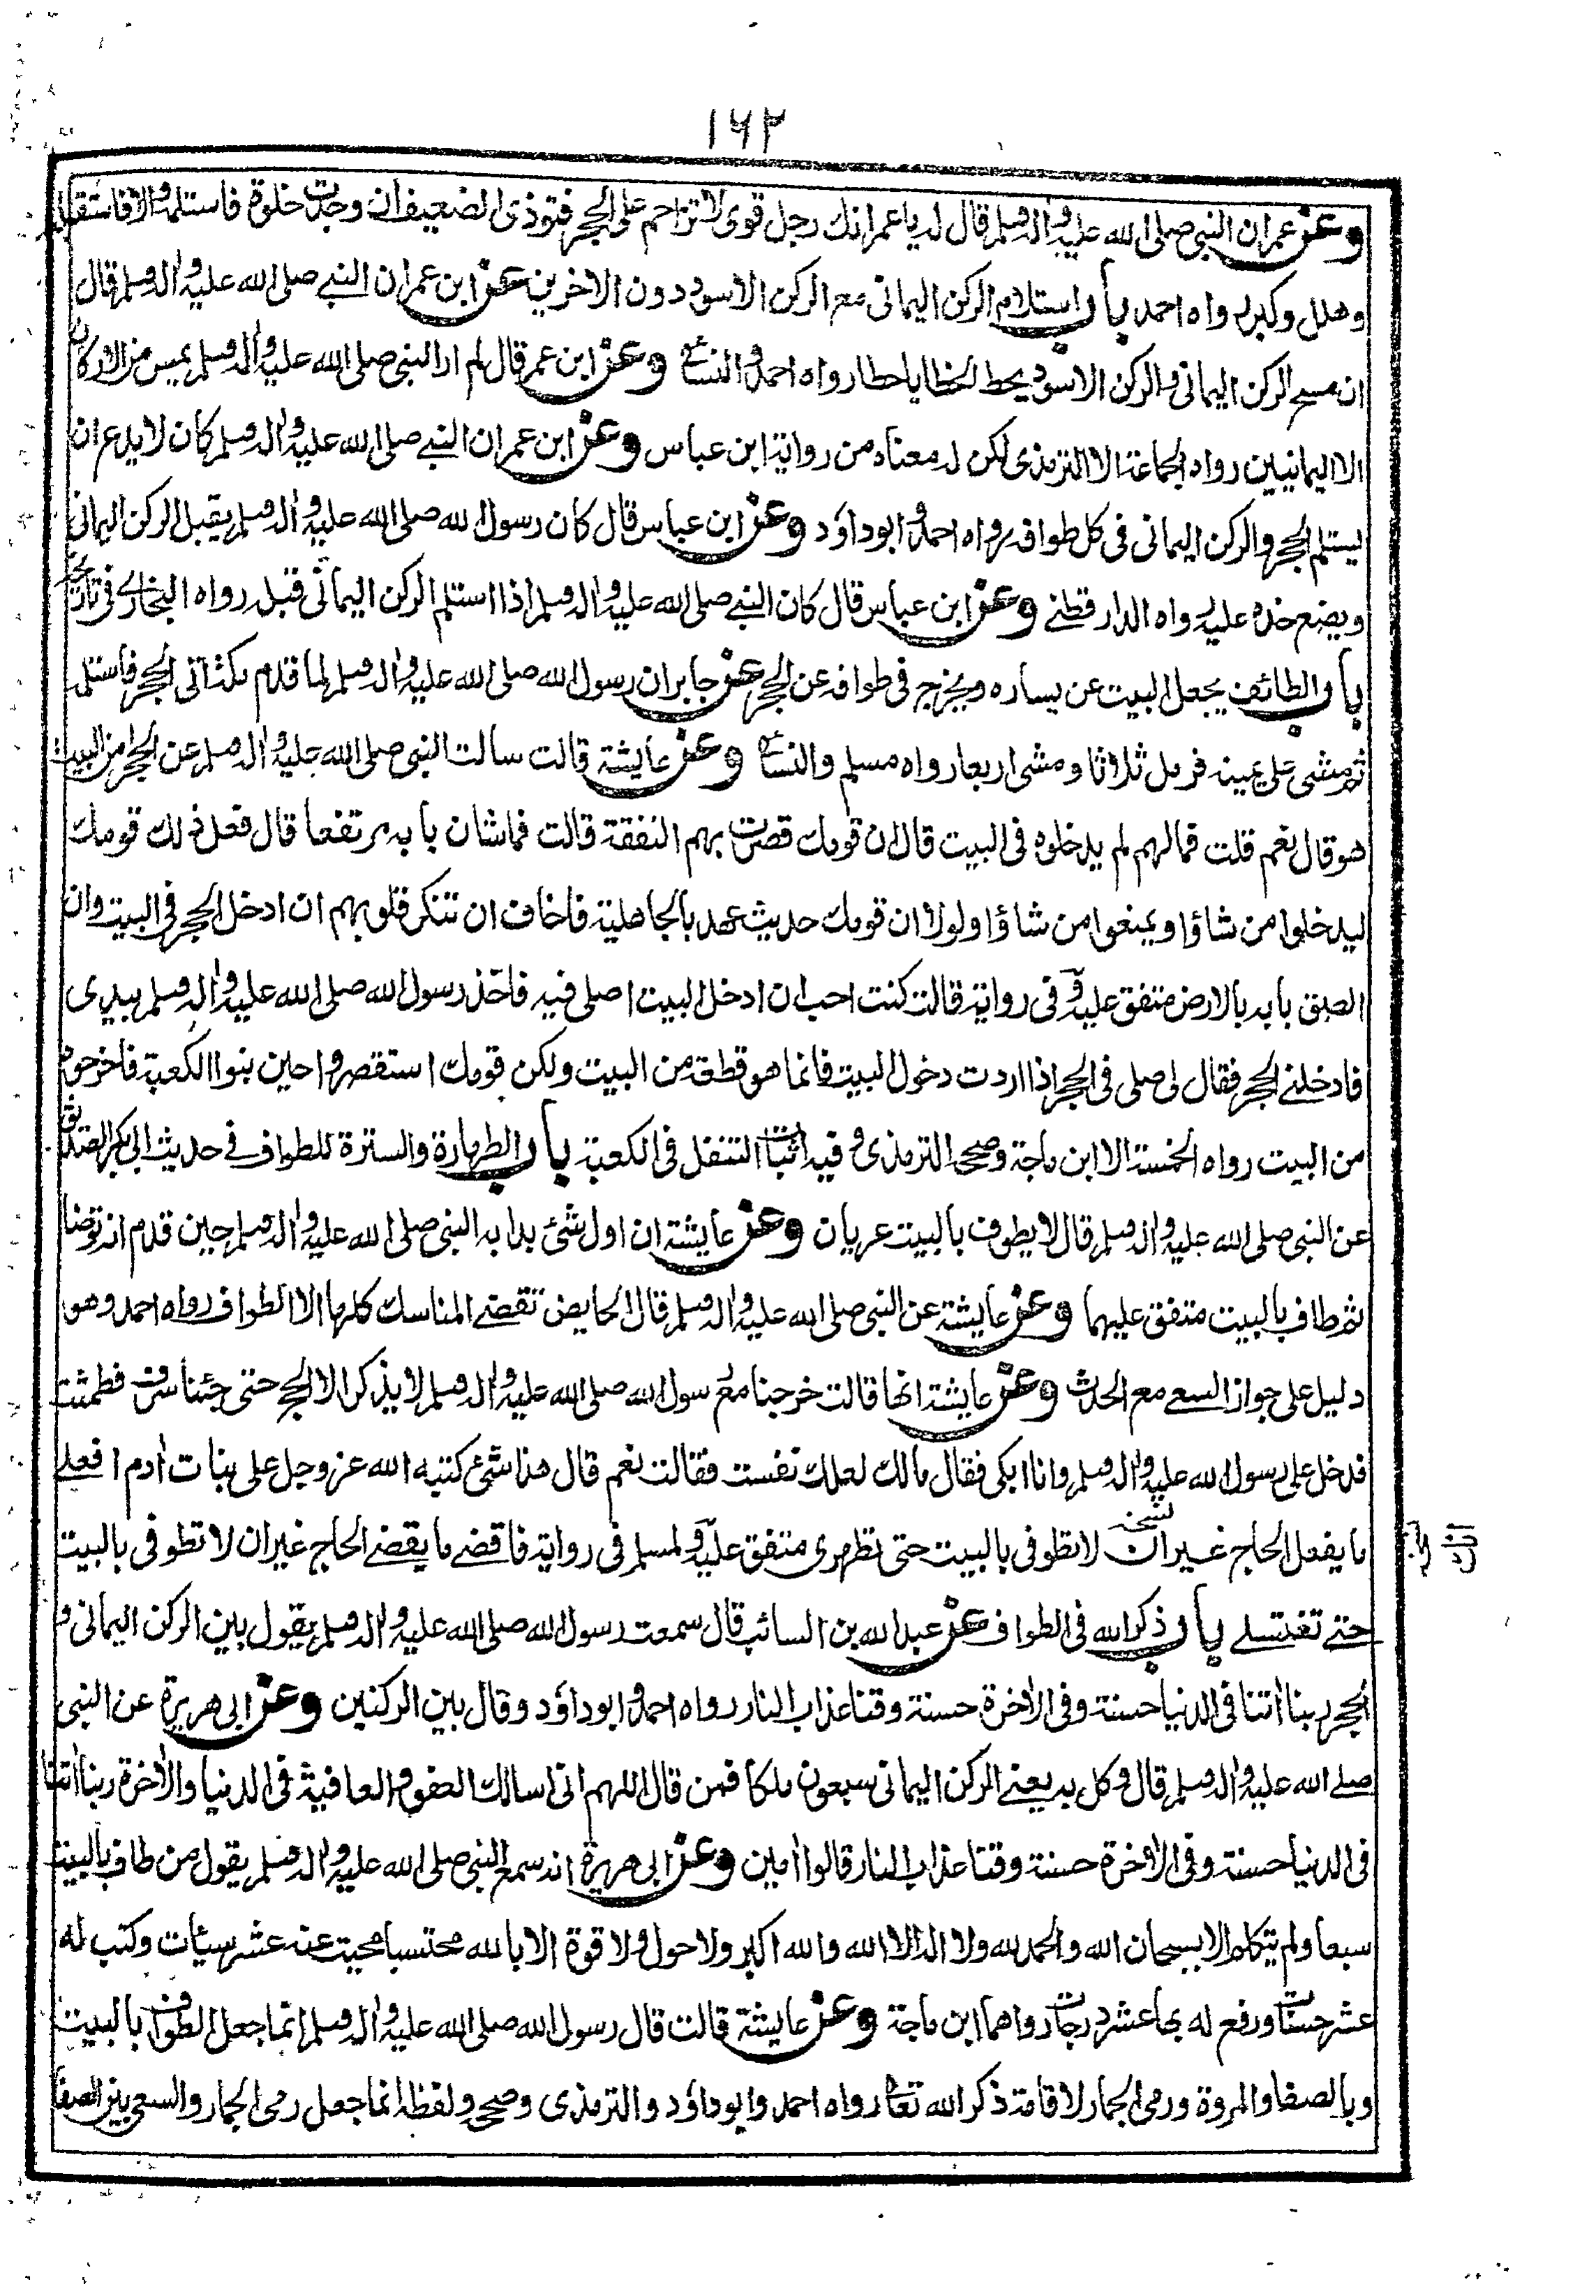 ١٦٢
وعن عمر ان النبي صلى الله عليه واله وسلم قال له يا عمر انك رجل قوى لا تزاحم على الحجر فتوذى الضعيف ان وجدت خلوة فاستلمه والا فاستقبله
وهلل وكبر رواه احمد باب استلام الركن اليمانى مع الركن الاسود دون الاخرين عن ابن عمر ان النبي صلى الله عليه واله وسلم قال
ان مسح الركن اليمانى والركن الاسود يحط الخطايا حطا رواه احمد والنسائى وعن ابن عمر قال لم ار النبى صلى الله عليه واله وسلم يمس من الاركان
الا اليمانيين رواه الجماعة الا الترمذى لكن له معناه من رواية ابن عباس وعن ابن عمر ان النبي صلى الله عليه واله وسلم كان لا يدع ان
يستلم الحجر والركن اليمانى فى كل طوافه رواه احمد وابو داؤد وعن ابن عباس قال كان رسول الله صلى الله عليه واله وسلم يقبل الركن اليمانى
ويضع خده عليه رواه الدارقطنے وعن ابن عباس قال كان النبے صلى الله عليه واله وسلم اذا استلم الركن اليمانى قبله رواه البخارى فى تاريخه
باب الطائف يجعل البيت عن يساره ويخرج فى طوافه عن الحجر عن جابر ان رسول الله صلى الله عليه واله وسلم لما قدم مكة اتى الحجر فاستلمه
ثم مشى على يمينه فرمل ثلاثا ومشى اربعا رواه مسلم والنسائى وعن عايشة قالت سالت النبى صلى الله عليه واله وسلم عن الحجر امن البيت
هو قال نعم قلت فمالهم لم يدخلوه فى البيت قال ان قومك قصرت بهم النفقة قالت فماشان بابه مرتفعا قال فعل ذلك قومك
ليدخلوا من شاؤا ويمنعوا من شاؤا ولولا ان قومك حديث عهد بالجاهلية فاخاف ان تنكر قلوبهم ان ادخل الحجر فى البيت وان
الصق بابه بالارض متفق عليه وفى رواية قالت كنت احب ان ادخل البيت اصلى فيه فاخذ رسول الله صلى الله عليه واله وسلم بيدى
فادخلنے الحجر فقال لى صلى فى الحجر اذا اردت دخول البيت فانما هو قطعة من البيت ولكن قومك استقصروا حين بنوا الكعبة فاخرجوه
من البيت رواه الخمسة الا ابن ماجة وصححه الترمذى وفيه اثبات التنفل فى الكعبة باب الطهارة والسترة للطواف فے حديث ابى بكر الصديق
عن النبى صلى الله عليه واله وسلم قال لا يطوف بالبيت عريان وعن عايشة ان اول شئ بدا به النبى صلى الله عليه واله وسلم حين قدم انه توضا
ثم طاف بالبيت متفق عليهما وعن عايشة عن النبى صلى الله عليه واله وسلم قال الحايض تقضے المناسك كلها الا الطواف رواه احمد وهو
دليل على جواز السعے مع الحدث وعن عايشة انها قالت خرجنا مع رسول الله صلى الله عليه واله وسلم لا يذكر الا الحج حتى جئنا سرف فطمثت
فدخل على رسول الله عليه واله وسلم وانا ابكى فقال مالك لعلك نفست فقالت نعم قال هذا شئ كتبه الله عز وجل على بنات ادم افعلے
ما يفعل الحاج غير ان لا تطوفى بالبيت حتى تطهرى متفق عليه ولمسلم فى رواية فاقضے ما يقضے الحاج غير ان لا تطوفى بالبيت
حتے تغتسلے باب ذكر الله فى الطواف عن عبد الله بن السائب قال سمعت رسول الله صلى الله عليه واله وسلم يقول بين الركن اليمانى و
الحجر ربنا اتنا فى الدنيا حسنة وفى الاخرة حسنة وقنا عذاب النار رواه احمد وابو داؤد وقال بين الركنين وعن ابى هريرة عن النبى
صلے الله عليه واله وسلم قال وكل به يعنے الركن اليمانى سبعون ملكا فمن قال اللهم انى اسالك العفو والعافية فى الدنيا والاخرة ربنا اتنا
فى الدنيا حسنة وفى الاخرة حسنة وقنا عذاب النار قالوا امين وعن ابى هريرة انه سمع النبى صلى الله عليه واله وسلم يقول من طاف بالبيت
سبعا ولم يتكلم الا بسبحان الله والحمد لله ولا اله الا الله والله اكبر ولا حول ولا قوة الا بالله محتسبا محيت عنه عشر سيئات وكتب له
عشر حسنات ورفع له بها عشر درجات رواهما ابن ماجة وعن عايشة قالت قال رسول الله صلى الله عليه واله وسلم انما جعل الطواف بالبيت
وبالصفا والمروة ورمى الجمار لاقامة ذكر الله تعالى رواه احمد وابو داؤد والترمذى وصححه ولفظه انما جعل رمى الجمار والسعى بين الصفا